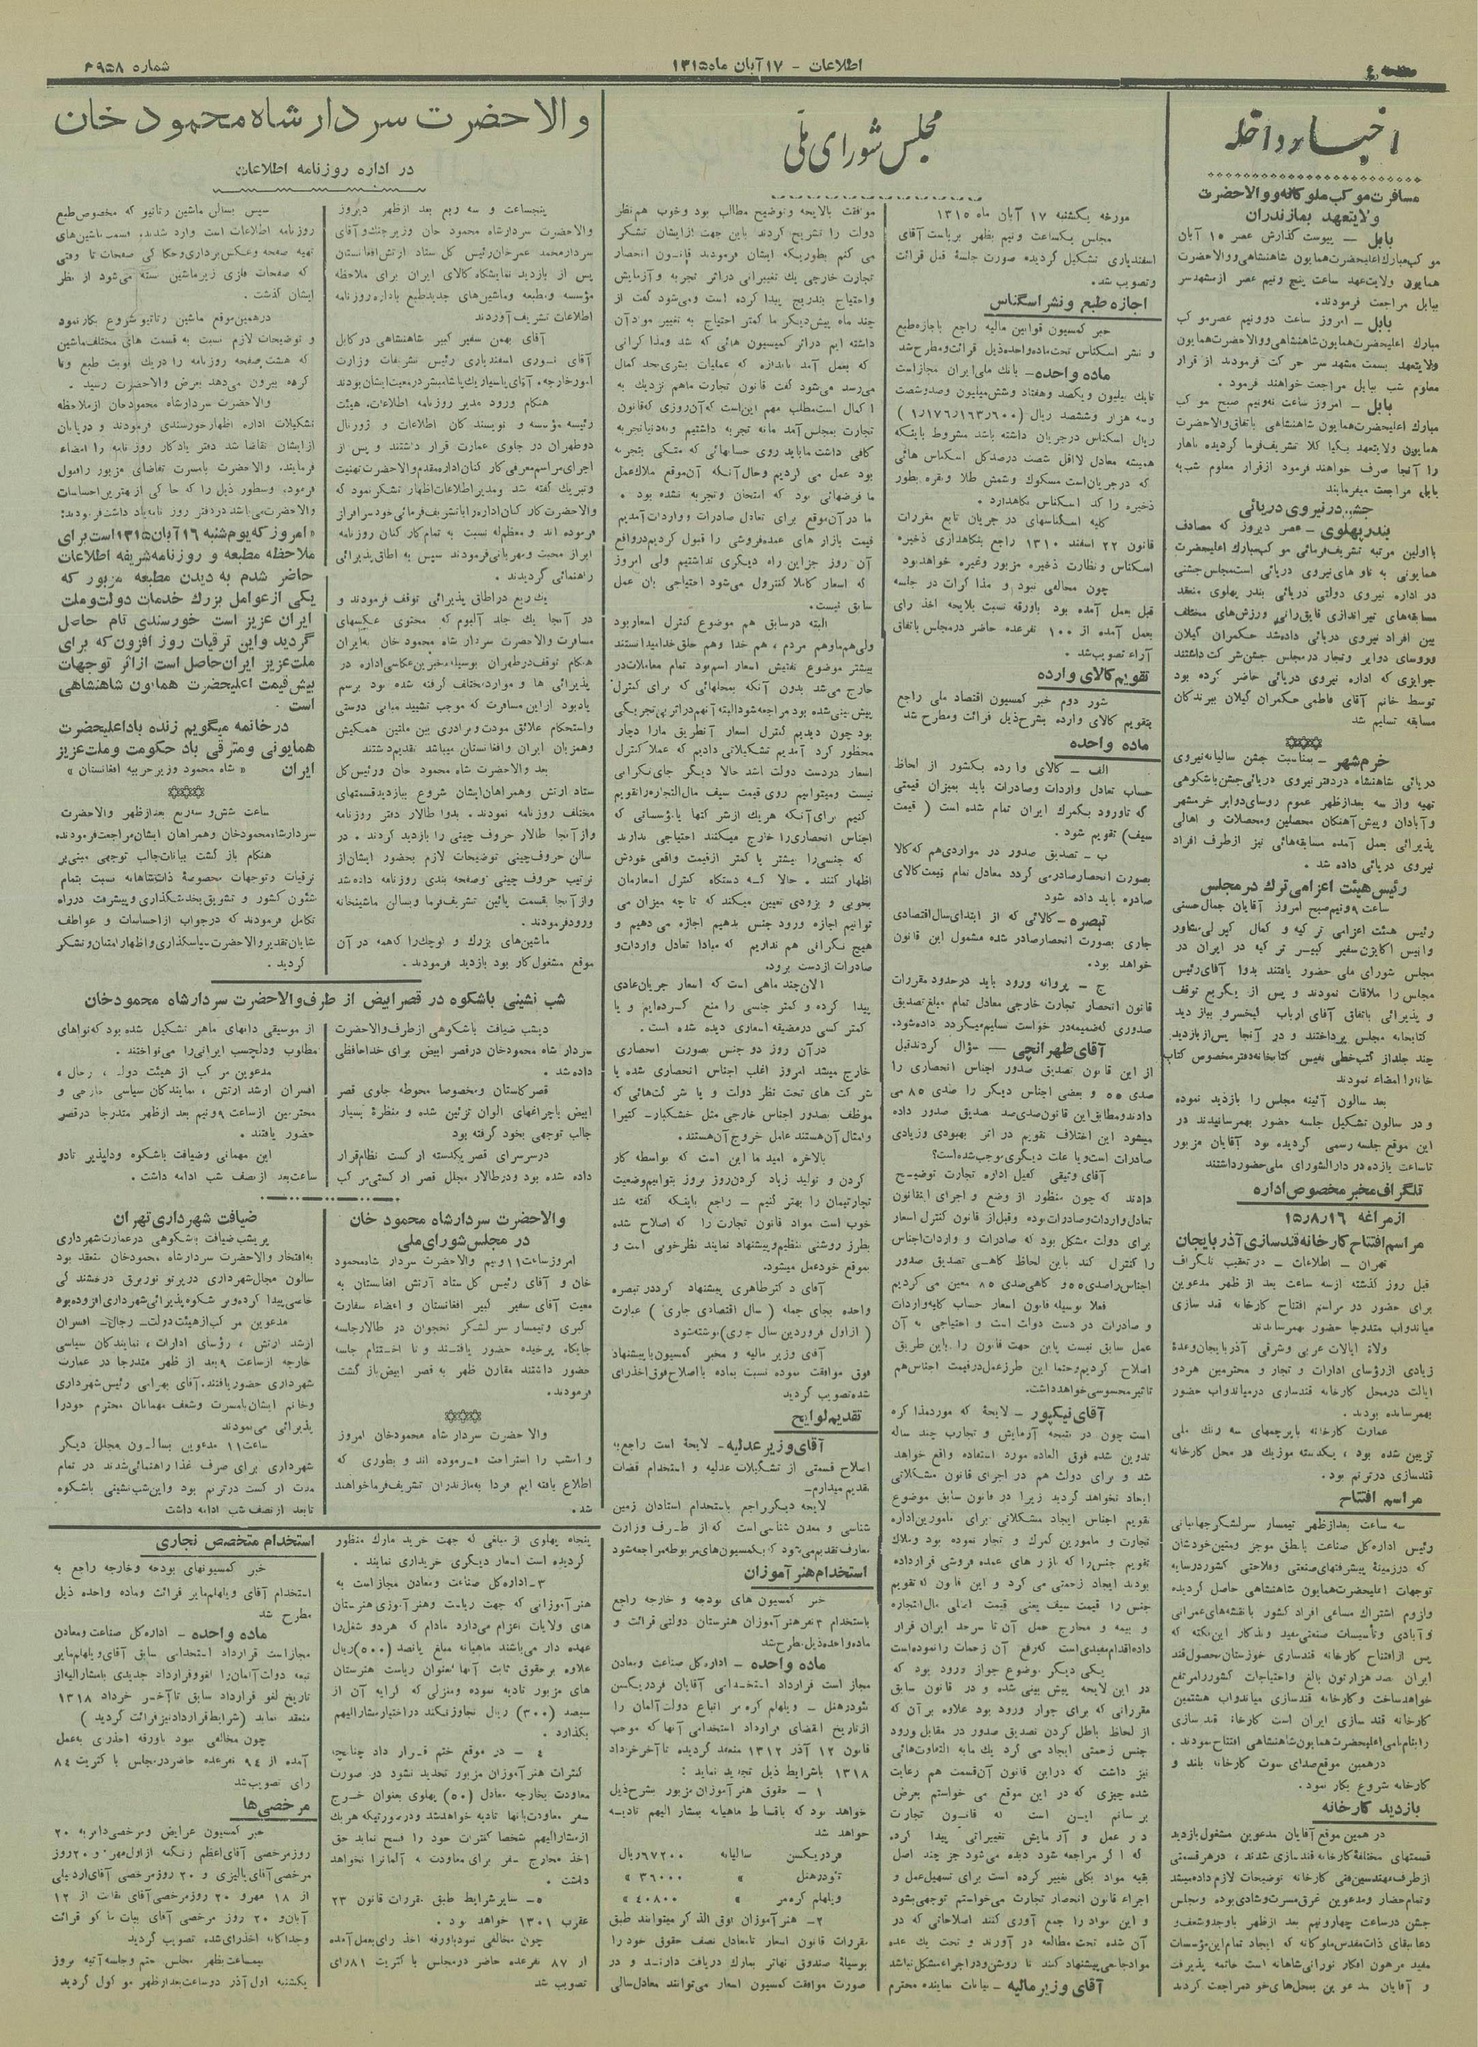 شماره ۲۹۵۸
اطلاعات - ۱۷ آبان ماه ۱۳۱۵
اخبار داخله
مسافرت موکب ملوکانه و والاحضرت
ولایتعهد بمازندران
بابل - بیوست گذارش عصر ۱۵ آبان
موکب مبارک اعلیحضرت همایون شاهنشاهی و والاحضرت
همایون ولایت عهد ساعت پنج ونیم عصر از مشهدسر
ببابل مراجعت فرمودند.
بابل - امروز ساعت دوونیم عصر موکب
مبارک اعلیحضرت همایون شاهنشاهی و والاحضرت همایون
ولایتعهد بسمت مشهد سر حرکت فرمودند از قرار
معلوم شب ببابل مراجعت خواهند فرمود.
بابل - امروز ساعت نه ونیم صبح موکب
مبارک اعلیحضرت همایون شاهنشاهی باتفاق والاحضرت
همایون ولایتعهد بکیا کلا تشریف فرما گردیده ناهار
را آنجا صرف خواهند فرمود ازقرار معلوم شب به
بابل مراجعت میفرمایند
جشن در نیروی دریائی
بندر پهلوی - عصر دیروز که مصادف
با اولین مرتبه تشریف فرمائی موکب مبارک اعلیحضرت
همایونی به ناوهای نیروی دریائی است مجلس جشنی
در اداره نیروی دولتی دریائی بندر پهلوی منعقد
مسابقه های تیر اندازی قایق رانی ورزش های مختلف
بین افراد نیروی دریائی داده شد حکمران گیلان
وروسای دوایر وتجار درمجلس جشن شرکت داشتند
جوایزی که اداره نیروی دریائی حاضر کرده بود
توسط خانم آقای فاطمی حکمران گیلان ببرندگان
مسابقه تسلیم شد
خرم شهر - بمناسبت جشن سالیانه نیروی
دریائی شاهنشاه دردفتر نیروی دریائی جشن باشکوهی
تهیه واز سه بعدازظهر عموم روسای دوایر خرمشهر
وآبادان وپیش آهنکان محصلین ومحصلات و اهالی
پذیرائی بعمل آمده مسابقه هائی نیز ازطرف افراد
نیروی دریائی داده شد.
رئیس هیئت اعزامی ترک در مجلس
ساعت ۹ ونیم صبح امروز آقایان جمال حسنی
رئیس هیئت اعزامی ترکیه و کمال کپرلی مشاور
وانیس آکایزن سفیر کبیر ترکیه در ایران در
مجلس شورای ملی حضور یافتند بدوا آقای رئیس
مجلس را ملاقات نمودند و پس از یکربع توقف
و پذیرائی باتفاق آقای ارباب کیخسرو ببازدید
کتابخانه مجلس پرداختند و در آنجا پس ازبازدید
چند جلداز کتب خطی نفیس کتابخانه دفتر مخصوص کتاب
خانه را امضاء نمودند
بعد سالون آئینه مجلس را بازدید نموده
و در سالون تشکیل جلسه حضور بهمرسانیدند در
این موقع جلسه رسمی گردیده بود آقایان مزبور
تاساعت یازده در دارالشورای ملی حضورداشتند
تلگراف مخبر مخصوص اداره
از مراغه ۱۵٫۸٫۱۶
مراسم افتتاح کارخانه قندسازی آذربایجان
تهران - اطلاعات - در تعقیب تلگراف
قبل روز گذشته ازسه ساعت بعد از ظهر مدعوین
برای حضور در مراسم افتتاح کارخانه قند سازی
میاندواب متدرجا حضور بهمرساندند
ولاة ایالات غربی وشرقی آذربایجان وعدة
زیادی ازرؤسای ادارات و تجار و محترمین هردو
ایالت درمحل کارخانه قندسازی درمیاندواب حضور
بهمرسانده بودند.
عمارت کارخانه باپرچمهای سه رنگ ملی
تزیین شده بود، یکدسته موزیک در محل کارخانه
قندسازی درترنم بود.
مراسم افتتاح
سه ساعت بعدازظهر تیمسار سرلشگر جهانبانی
رئیس اداره کل صناعت بانطق موجز ومتین خودشان
که درزمینه پیشرفتهای صنعتی وفلاحتی کشور درسایه
توجهات اعلیحضرت همایون شاهنشاهی حاصل گردیده
ولزوم اشتراک مساعی افراد کشور بانقشه های عمرانی
و آبادی وتأسیسات صنعتی مفید وتذکار این نکته که
پس ازافتتاح کارخانه قندسازی خوزستان محصول قند
ایران بصد هزارتن بالغ واحتیاجات کشوررامرتفع
خواهد ساخت و کارخانه قندسازی میاندواب هشتمین
کارخانه قند سازی ایران است کارخانه قند سازی
را بنام نامی اعلیحضرت همایون شاهنشاهی افتتاح نمودند.
درهمین موقع صدای سوت کارخانه بلند و
کارخانه شروع بکار نمود.
بازدید کارخانه
در همین موقع آقایان مدعوین مشغول بازدید
قسمتهای مختلفه کارخانه قندسازی شدند، درهرقسمتی
ازطرف مهندسین فنی کارخانه توضیحات لازم داده میشد
و تمام حضار و مدعوین غرق مسرت وشادی بوده و مجلس
جشن درساعت چهارونیم بعد ازظهر باوجد وشعف و
دعا ببقای ذات مقدس ملوکانه که ایجاد تمام این مؤسسات
مفید مرهون افکار نورانی شاهانه است خاتمه پذیرفت
و آقایان مدعوین بمحل های خود مراجعت کردند
مجلس شورای ملی
مورخه یکشنبه ۱۷ آبان ماه ۱۳۱۵
مجلس یکساعت ونیم بظهر بریاست آقای
اسفندیاری تشکیل گردیده صورت جلسهٔ قبل قرائت
وتصویب شد.
اجازه طبع و نشر اسکناس
خبر کمسیون قوانین مالیه راجع باجازه طبع
و نشر اسکناس تحت ماده واحده ذیل قرائت ومطرح شد
ماده واحده - بانک ملی ایران مجاز است
تایک بیلیون و یکصد وهفتاد وشش میلیون وصدوشصت
و سه هزار وششصد ریال (۱٫۱۷۶٫۱۶۳٫۶۰۰)
ریال اسکناس درجریان داشته باشد مشروط باینکه
همیشه معادل لااقل شصت درصد کل اسکناس هائی
که درجریان است مسکوک وشمش طلا و نقره بطور
ذخیره را کد اسکناس نگاهدارد.
کلیه اسکناسهای در جریان تابع مقررات
قانون ۲۲ اسفند ۱۳۱۰ راجع بنگاهداری ذخیره
اسکناس ونظارت ذخیره مزبور وغیره خواهد بود
چون مخالفی نبود و مذاکرات در جلسه
قبل بعمل آمده بود باورقه نسبت بلایحه اخذ رای
بعمل آمده از ۱۰۰ نفرعده حاضر درمجلس باتفاق
آراء تصویب شد.
تقویم کالای وارده
شور دوم خبر کمسیون اقتصاد ملی راجع
بتقویم کالای وارده بشرح ذیل قرائت ومطرح شد
ماده واحده
الف - کالای وارده بکشور از لحاظ
حساب تعادل واردات وصادرات باید بمیزان قیمتی
که تاورود بگمرک ایران تمام شده است (قیمت
سیف) تقویم شود.
ب - تصدیق صدور در مواردی هم که کالا
بصورت انحصار صادر می گردد معادل تمام قیمت کالای
صادره باید داده شود
تبصره - کالائی که از ابتدای سال اقتصادی
جاری بصورت انحصار صادر شده مشمول این قانون
خواهد بود.
ج - پروانه ورود باید درحدود مقررات
قانون انحصار تجارت خارجی معادل تمام مبلغ تصدیق
صدوری که ضمیمه درخواست تسلیم میگردد داده شود.
آقای طهرانچی - سؤال کردند قبل
از این قانون تصدیق صدور اجناس انحصاری را
صدی ۵۵ و بعضی اجناس دیگر را صدی ۸۵ می
دادند ومطابق این قانون صدی صد تصدیق صدور داده
میشود این اختلاف تقویم در اثر بهبودی وزیادی
صادرات است ویا علت دیگری موجب شده است؟
آقای وثیقی کفیل اداره تجارت توضیح
دادند که چون منظور از وضع و اجرای اینقانون
تعادل واردات وصادرات بوده وقبل از قانون کنترل اسعار
برای دولت مشکل بود که صادرات و واردات اجناس
را کنترل کند باین لحاظ گاهی تصدیق صدور
اجناس راصدی ۵۵ و گاهی صدی ۸۵ معین می کردیم
فعلا بوسیله قانون اسعار حساب کلیه واردات
و صادرات در دست دولت است و احتیاجی به آن
عمل سابق نیست باین جهت قانون را باین طریق
اصلاح کردیم وحتما این طرز عمل درقیمت اجناس هم
تاثیر محسوسی خواهد داشت.
آقای نیکپور - لایحهٔ که موردمذاکره
است چون در نتیجه آزمایش و تجارب چند ساله
تدوین شده فوق العاده مورد استفاده واقع خواهد
شد و برای دولت هم در اجرای قانون مشکلاتی
ایجاد نخواهد گردید زیرا در قانون سابق موضوع
تقویم اجناس ایجاد مشکلاتی برای مامورین اداره
تجارت و مامورین گمرک و تجار نموده بود وملاک
تقویم جنس را که بازارهای عمده فروشی قرارداده
بودند ایجاد زحمتی می کرد و این قانون که تقویم
جنس را قیمت سیف یعنی قیمت اصلی مال التجاره
و بیمه و مخارج حمل آن تا سرحد ایران قرار
داده اقدام مفیدی است که رفع آن زحمات را نموده است
یکی دیگر موضوع جواز ورود بود که
در این لایحه پیش بینی شده و در قانون سابق
مقرراتی که برای جواز ورود بود علاوه بر آن که
از لحاظ باطل کردن تصدیق صدور در مقابل ورود
جنس زحمتی ایجاد می کرد یک مابه التفاوت هائی
نیز داشت که دراین قانون آن قسمت هم رعایت
شده چیزی که در این موقع می خواستم بعرض
برسانم این است که قانون تجارت
در عمل و آزمایش تغییراتی پیدا کرد.
که اگر مراجعه شود دیده می شود جز چند اصل
بقیه مواد بکلی تغییر کرده است برای تسهیل عمل و
اجراء قانون انحصار تجارت می خواستم توجهی بشود
و این مواد را جمع آوری کنند اصلاحاتی که در
آن شده تحت مطالعه در آورند و تحت یک عده
مواد جامعی پیشنهاد کنند تا روشن و دراجراء مشکل نباشد
آقای وزیر مالیه - بیانات نماینده محترم
موافقت بالایحه وتوضیح مطالب بود وخوب هم نظر
دولت را تشریح کردند باین جهت ازایشان تشکر
می کنم بطوریکه ایشان فرمودند قانون انحصار
تجارت خارجی یک تغییراتی دراثر تجربه و آزمایش
واحتیاج بتدریج پیدا کرده است ومی شود گفت از
چند ماه پیش دیگر ما کمتر احتیاج به تغییر موادآن
داشته ایم دراثر کمیسیون هائی که شد ومذاکراتی
که بعمل آمد باندازه که عملیات بشری بحد کمال
می رسد می شود گفت قانون تجارت ماهم نزدیک به
اکمال است مطلب مهم این است که آن روزی که قانون
تجارت بمجلس آمد مانه تجربه داشتیم ونه دنیا تجربه
کافی داشت ما باید روی حسابهائی که متکی بتجربه
بود عمل می کردیم وحال آنکه آن موقع ملاک عمل
ما فرضهائی بود که امتحان وتجربه نشده بود.
ما درآن موقع برای تعادل صادرات و واردات آمدیم
قیمت بازار های عمده فروشی را قبول کردیم درواقع
آن روز جزاین راه دیگری نداشتیم ولی امروز
که اسعار کاملا کنترول می شود احتیاجی بآن عمل
سابق نیست.
البته درسابق هم موضوع کنترول اسعاربود
ولی هم ماوهم مردم، هم خدا وهم خلق خدا میدانستند
بیشتر موضوع تفتیش اسعار اسم بود تمام معاملات در
خارج می شد بدون آنکه بمحلهائی که برای کنترل
پیش بینی شده بود مراجعه شود البته آنهم دراثر بی تجربگی
بود چون دیدیم کنترل اسعار آنطریق مارا دچار
محظور کرد آمدیم تشکیلاتی دادیم که عملا کنترل
اسعار دردست دولت باشد حالا دیگر جای نگرانی
نیست ومیتوانیم روی قیمت سیف مال التجاره راتقویم
کنیم برای آنکه هریک ازشرکتها یا مؤسساتی که
اجناس انحصاری را خارج میکنند احتیاجی ندارند
که جنسی را بیشتر یا کمتر ازقیمت واقعی خودش
اظهار کنند. حالا که دستگاه کنترل اسعارمان
بخوبی و بزودی تعیین میکند که تا چه میزان می
توانیم اجازه ورود جنس بدهیم اجازه می دهیم و
هیچ نگرانی هم نداریم که مبادا تعادل واردات و
صادرات ازدست برود.
الان چند ماهی است که اسعار جریان عادی
پیدا کرده و کمتر جنسی را منع کرده ایم و یا
کمتر کسی درمضیقه اسعاری دیده شده است.
درآن روز دو جنس بصورت انحصاری
خارج میشد امروز اغلب اجناس انحصاری شده یا
شرکت های تحت نظر دولت و یا شرکت هائی که
موظف بصدور اجناس خارجی مثل خشکبار - کتیرا
وامثال آن هستند عامل خروج آن هستند.
بالاخره امید ما این است که بواسطه کار
کردن و تولید زیاد کردن روز بروز بتوانیم وضعیت
تجارتیمان را بهتر کنیم - راجع باینکه گفته شد
خوب است مواد قانون تجارت را که اصلاح شده
بطرز روشنی تنظیم وپیشنهاد نمایند نظرخوبی است و
بموقع خود عمل میشود.
آقای دکتر طاهری پیشنهاد کرددر تبصره
واحده بجای جمله (سال اقتصادی جاری) عبارت
(ازاول فروردین سال جاری) نوشته شود
آقای وزیر مالیه و مخبر کمسیون باپیشنهاد
فوق موافقت نموده نسبت بماده بااصلاح فوق اخذرای
شده تصویب گردید
تقدیم لوایح
آقای وزیر عدلیه - لایحهٔ است راجع به
اصلاح قسمتی از تشکیلات عدلیه و استخدام قضات
تقدیم میدارم -
لایحه دیگر راجع باستخدام استادان زمین
شناسی و معدن شناسی است که از طرف وزارت
معارف تقدیم می شود که بکمسیون های مربوطه مراجعه شود
استخدام هنر آموزان
خبر کمسیون های بودجه و خارجه راجع
باستخدام ۳ نفرهنرآموزان هنرستان دولتی قرائت و
ماده واحده ذیل مطرح شد
ماده واحده - اداره کل صناعت ومعادن
مجاز است قرارداد استخدامی آقایان فردریکسن
تئودرهنل - ویلهلم کرمر اتباع دولت آلمان را
ازتاریخ انقضای قرارداد استخدامی آنها که موجب
قانون ۱۲ آذر ۱۳۱۲ منعقد گردیده تا آخر خرداد
۱۳۱۸ باشرایط ذیل تجدید نماید:
۱ - حقوق هنرآموزان مزبور بشرح ذیل
خواهد بود که باقساط ماهیانه بمشارالیهم تادیه
خواهد شد
فردریکسن سالیانه ۶۷۲۰۰ ریال
تئودرهنل « ۳۶۰۰۰ »
ویلهلم کرمر « ۴۰۸۰۰ »
۲ - هنرآموزان فوق الذکر میتوانند طبق
مقررات قانون اسعار تامعادل نصف حقوق خود را
بوسیله صندوق تهاتر بمارک دریافت دارند و در
صورت موافقت کمسیون اسعار می توانند معادل سالی
والاحضرت سردار شاه محمود خان
در اداره روزنامه اطلاعات
پنجساعت و سه ربع بعد ازظهر دیروز
والاحضرت سردارشاه محمود خان وزیر جنگ و آقای
سردار محمد عمرخان رئیس کل ستاد ارتش افغانستان
پس از بازدید نمایشگاه کالای ایران برای ملاحظه
مؤسسه ومطبعه وماشین های جدید طبع باداره روزنامه
اطلاعات تشریف آوردند
آقای بهمن سفیر کبیر شاهنشاهی در کابل
آقای نوری اسفندیاری رئیس تشریفات وزارت
امورخارجه، آقای پاسیار یک پاشا مبشر درمعیت ایشان بودند
هنگام ورود مدیر روزنامه اطلاعات، هیئت
رئیسه مؤسسه و نویسندگان اطلاعات و ژورنال
دوطهران در جلوی عمارت قرار داشتند و پس از
اجرای مراسم معرفی کارکنان اداره مقدم والاحضرت تهنیت
وتبریک گفته شد ومدیر اطلاعات اظهار تشکرنمود که
والاحضرت کارکنان اداره را با تشریف فرمائی خود سرافراز
فرموده اند و معظم له نسبت به تمام کارکنان روزنامه
ابراز محبت ومهربانی فرمودند سپس به اطاق پذیرائی
راهنمائی گردیدند.
یک ربع دراطاق پذیرائی توقف فرمودند و
در آنجا یک جلد آلبوم که محتوی عکسهای
مسافرت والاحضرت سردار شاه محمود خان به ایران
هنگام توقف درطهران بوسیله مخبرین عکاسی اداره در
پذیرائی ها و مواردمختلف گرفته شده بود برسم
یادبود ازاین مسافرت که موجب تشیید مبانی دوستی
واستحکام علائق مودت وبرادری بین ملتین همکیش
وهمزبان ایران وافغانستان میباشد تقدیم داشتند
بعد والاحضرت شاه محمود خان ورئیس کل
ستاد ارتش وهمراهان ایشان شروع ببازدید قسمتهای
مختلف روزنامه نمودند. بدوا طالار دفتر روزنامه
وازآنجا طالار حروف چینی را بازدید کردند. در
سالن حروف چینی توضیحات لازم بحضور ایشان از
ترتیب حروف چینی وصفحه بندی روزنامه داده شد
وازآنجا بقسمت پائین تشریف فرما وبسالن ماشینخانه
ورودفرمودند.
ماشین های بزرگ و کوچک را که همه در آن
موقع مشغول کار بود بازدید فرمودند.
سپس بسالن ماشین رتاتیو که مخصوص طبع
روزنامه اطلاعات است وارد شدند، قسمت ماشین های
تهیه صفحه وعکس برداری وحکاکی صفحات تا وقتی
که صفحات فلزی زیر ماشین بسته می شود از نظر
ایشان گذشت.
درهمین موقع ماشین رتاتیو شروع بکارنمود
و توضیحات لازم نسبت به قسمت های مختلف ماشین
که هشت صفحه روزنامه را دریک نوبت طبع وتا
کرده بیرون می دهد بعرض والاحضرت رسید.
والاحضرت سردارشاه محمودخان ازملاحظه
تشکیلات اداره اظهار خورسندی فرمودند و درپایان
ازایشان تقاضا شد دفتر یادگار روز نامه را امضاء
فرمایند. والاحضرت بامسرت تقاضای مزبور را قبول
فرمود، وسطور ذیل را که حاکی از بهترین احساسات
والاحضرت می باشد دردفتر روز نامه یاد داشت فرمودند:
« امروز که یوم شنبه ۱۶ آبان ۱۳۱۵ است برای
ملاحظه مطبعه و روزنامه شریفه اطلاعات
حاضر شدم به دیدن مطبعه مزبور که
یکی از عوامل بزرک خدمات دولت وملت
ایران عزیز است خورسندی تام حاصل
گردید و این ترقیات روز افزون که برای
ملت عزیز ایران حاصل است ازاثر توجهات
بیش قیمت اعلیحضرت همایون شاهنشاهی
است.
در خاتمه میگویم زنده باد اعلیحضرت
همایونی و مترقی باد حکومت وملت عزیز
ایران « شاه محمود وزیر حربیه افغانستان »
ساعت شش و سه ربع بعدازظهر والاحضرت
سردارشاه محمودخان وهمراهان ایشان مراجعت فرمودند
هنگام بازگشت بیانات جالب توجهی مبنی بر
ترقیات وتوجهات مخصوصهٔ ذات شاهانه نسبت بتمام
شئون کشور و تشویق بخدمتگذاری وپیشرفت درراه
تکامل فرمودند که درجواب ازاحساسات و عواطف
شایان تقدیر والاحضرت سپاسگذاری واظهار امتنان وتشکر
گردید.
شب نشینی باشکوه در قصر ابیض از طرف والاحضرت سردار شاه محمود خان
دیشب ضیافت باشکوهی ازطرف والاحضرت
سردار شاه محمودخان درقصر ابیض برای خداحافظی
داده شد.
قصر گلستان ومخصوصا محوطه جلوی قصر
ابیض باچراغهای الوان تزئین شده و منظرهٔ بسیار
جالب توجهی بخود گرفته بود
درسرسرای قصر یکدسته ارکست نظام قرار
داده شده بود ودرطالار مجلل قصر ارکستی مرکب
از موسیقی دانهای ماهر تشکیل شده بود که نواهای
مطلوب ودلچسب ایرانی را می نواختند.
مدعوین مرکب از هیئت دولت، رجال،
افسران ارشد ارتش، نمایندگان سیاسی خارجی و
محترمین ازساعت ۹ ونیم بعد ازظهر متدرجا درقصر
حضور یافتند.
این مهمانی وضیافت باشکوه ودلپذیر تادو
ساعت بعد ازنصف شب ادامه داشت.
والاحضرت سردار شاه محمود خان
در مجلس شورای ملی
امروزساعت ۱۱ ونیم والاحضرت سردار شاه محمود
خان و آقای رئیس کل ستاد ارتش افغانستان به
معیت آقای سفیر کبیر افغانستان و اعضاء سفارت
کبری وتیمسار سرلشگر نخجوان در طالار جلسه
جایگاه پرخیده حضور یافتند و تا اختتام جلسه
حضور داشتند مقارن ظهر به قصر ابیض باز گشت
فرمودند.
والاحضرت سردار شاه محمودخان امروز
و امشب را استراحت فرموده اند و بطوری که
اطلاع یافته ایم فردا به مازندران تشریف فرما خواهند
شد.
ضیافت شهرداری تهران
پریشب ضیافت باشکوهی درعمارت شهرداری
به افتخار والاحضرت سردارشاه محمودخان منعقد بود
سالون مجلل شهرداری درپرتو نوربرق درخشندگی
خاصی پیدا کرده وبر شکوه پذیرائی شهرداری افزوده بود
مدعوین مرکب ازهیئت دولت - رجال - افسران
ارشد ارتش، رؤسای ادارات، نمایندگان سیاسی
خارجه ازساعت ۹ بعد از ظهر متدرجا در عمارت
شهرداری حضور یافتند. آقای بهرامی رئیس شهرداری
وخانم ایشان بامسرت وشعف مهمانان محترم خودرا
پذیرائی می نمودند
ساعت ۱۱ مدعوین بسالون مجلل دیگر
شهرداری برای صرف غذا راهنمائی شدند در تمام
مدت ارکست درترنم بود واین شب نشینی باشکوه
تابعد ازنصف شب ادامه داشت
پنجاه پهلوی از مبلغی که جهت خرید مارک منظور
گردیده است اسعار دیگری خریداری نمایند.
۳ - اداره کل صناعت ومعادن مجاز است به
هنرآموزانی که جهت ریاست وهنرآموزی هنرستان
های ولایات اعزام می دارد مادام که هردو شغل را
عهده دار می باشند ماهیانه مبلغ پانصد (۵۰۰) ریال
علاوه برحقوق ثابت آنها بعنوان ریاست هنرستان
های مزبور تادیه نموده ومنزلی که کرایه آن از
سیصد (۳۰۰) ریال تجاوز نکند دراختیار مشارالیهم
بگذارد.
۴ - در موقع ختم قرارداد چنانچه
کنترات هنرآموزان مزبور تجدید نشود در صورت
معاودت بخارجه معادل (۵۰) پهلوی بعنوان خرج
سفر معاودت بآنها تادیه خواهد شد ودرصورتیکه هریک
ازمشارالیهم شخصا کنترات خود را فسخ نماید حق
اخذ مخارج سفر برای معاودت به آلمان را نخواهد
داشت.
۵ - سایر شرایط طبق مقررات قانون ۲۳
عقرب ۱۳۰۱ خواهد بود.
چون مخالفی نبود باورقه اخذ رای بعمل آمده
از ۸۷ نفرعده حاضر درمجلس با کثریت ۸۱ رای
تصویب شد
استخدام متخصص نجاری
خبر کمسیونهای بودجه وخارجه راجع به
استخدام آقای ویلهلم مایر قرائت وماده واحده ذیل
مطرح شد
ماده واحده - اداره کل صناعت ومعادن
مجاز است قرارداد استخدامی سابق آقای ویلهلم مایر
تبعه دولت آلمان را لغو وقرارداد جدیدی بامشارالیه از
تاریخ لغو قرارداد سابق تا آخر خرداد ۱۳۱۸
منعقد نماید (شرایط قرارداد نیز قرائت گردید)
چون مخالفی نبود باورقه اخذرای بعمل
آمده از ۹۴ نفرعده حاضر درمجلس با کثریت ۸۴
رای تصویب شد
مرخصی ها
خبر کمسیون عرایض ومرخصی دایر به ۲۰
روزمرخصی آقای اعظم زنگنه ازاول مهر و ۲۰ روز
مرخصی آقای پالیزی و ۲۰ روز مرخصی آقای اردبیلی
از ۱۸ مهر و ۲۰ روزمرخصی آقای نقابت از ۱۲
آبان و ۲۰ روز مرخصی آقای بیات ماکو قرائت
وجداگانه اخذرای شده تصویب گردید
نیمساعت بظهر مجلس ختم وجلسه آتیه بروز
یکشنبه اول آذر دوساعت بعدازظهر موکول گردید